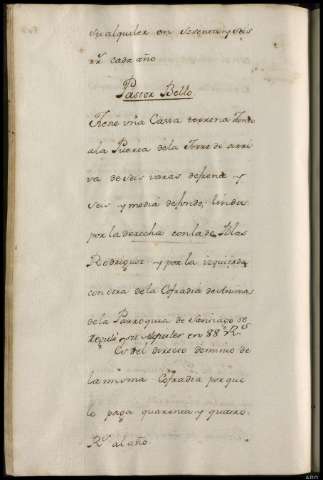 su alquiler en sesenta y seis
rs. cada año.
Pastor Bello
Tiene vna Cassa terrena
a la Puerta de la Torre de arri
va de seis varas de frente y
seis y media de fondo; linda
por la derecha con la de Blas
Rodriguez y por la izquierda
con otra de la Cofradia de Animas
de la Parroquia de Santiago se
regulò su alquiler en 88 Rs
Es del directo dominio de
la misma Cofradia porque
le paga quarenta y quatro
Rs. al año.